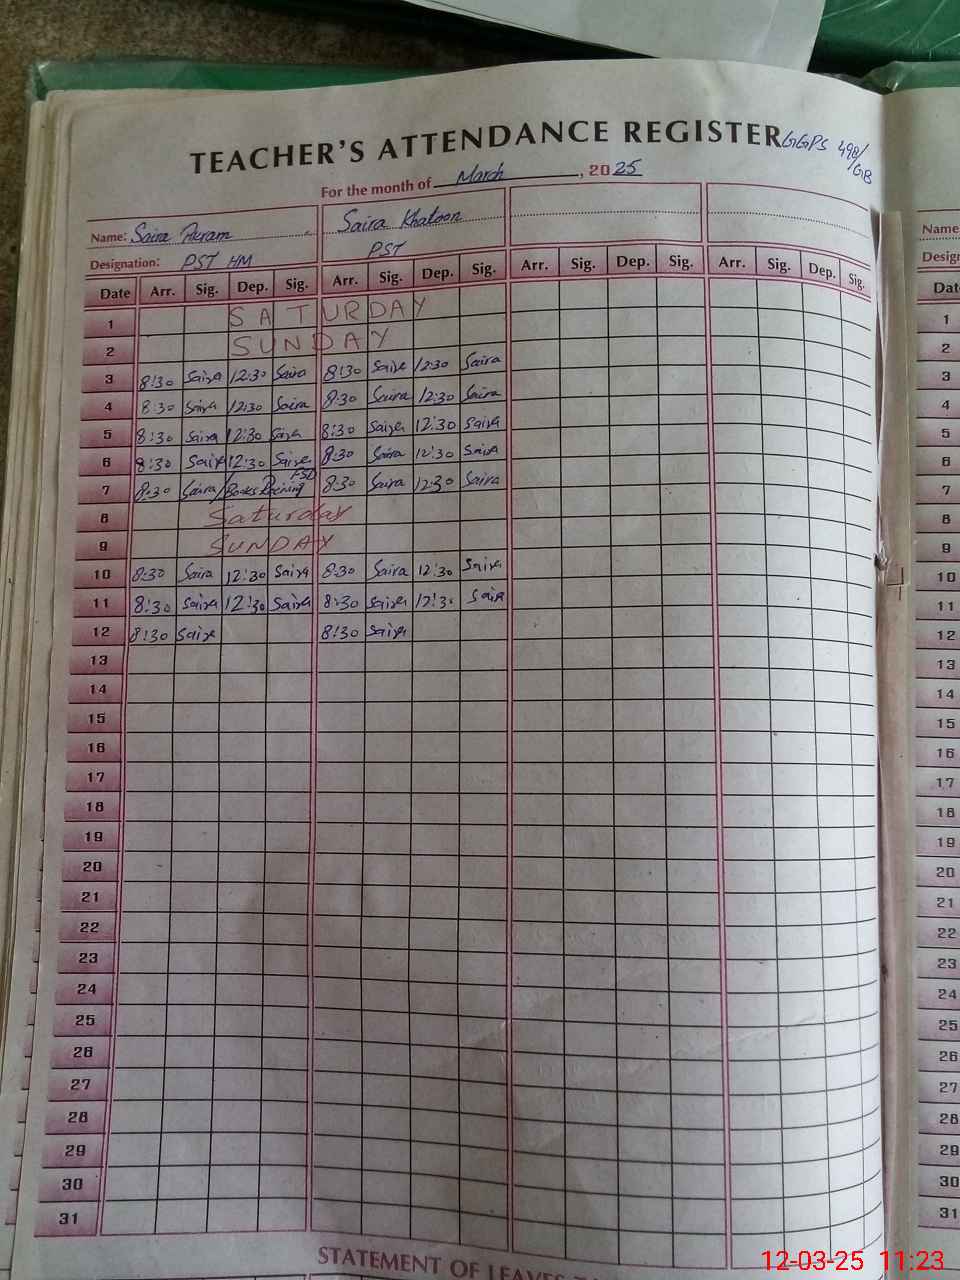 TEACHER'S ATTENDANCE REGISTER GGPS 498/
/GB
For the month of March, 2025
Name: Saira Akram Saira Khatoon
Designation: PST HM PST
Date Arr. Sig. Dep. Sig. Arr. Sig. Dep. Sig. Arr. Sig. Dep. Sig. Arr. Sig. Dep. Sig.
1 SATURDAY
2 SUNDAY
3 8:30 Saira 12:30 Saira 8:30 Saira 12:30 Saira
4 8:30 Saira 12:30 Saira 8:30 Saira 12:30 Saira
5 8:30 Saira 12:30 Saira 8:30 Saira 12:30 Saira
6 8:30 Saira 12:30 Saira 8:30 Saira 12:30 Saira
7 8:30 Saira Books FSD 8:30 Saira 12:30 Saira
8 Saturday
9 SUNDAY
10 8:30 Saira 12:30 Saira 8:30 Saira 12:30 Saira
11 8:30 Saira 12:30 Saira 8:30 Saira 12:30 Saira
12 8:30 Saira 8:30 Saira
13
14
15
16
17
18
19
20
21
22
23
24
25
26
27
28
29
30
31
STATEMENT OF LEAVES
Name
Design
Dat
1
2
3
4
5
6
7
8
9
10
11
12
13
14
15
16
17
18
19
20
21
22
23
24
25
26
27
28
29
30
31
12-03-25 11:23